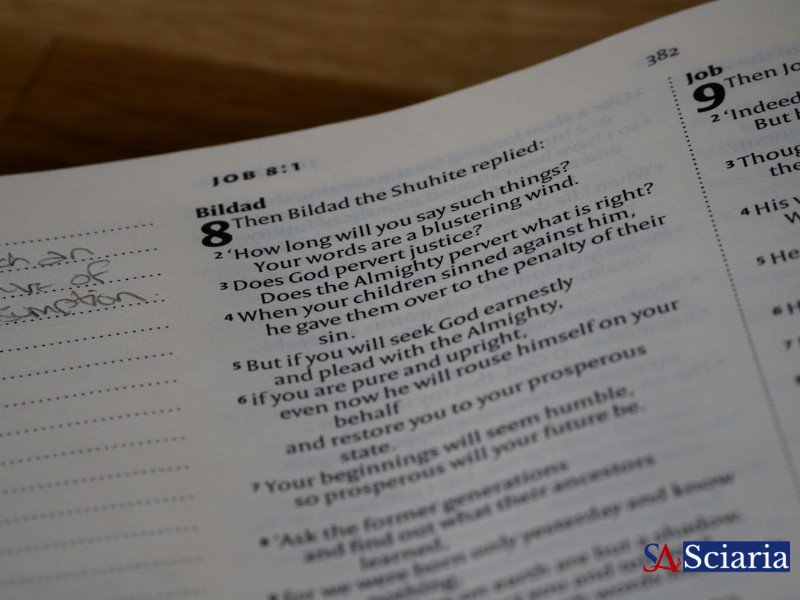 382
JOB 8:1
Bildad
8 Then Bildad the Shuhite replied:
2 ‘How long will you say such things?
Your words are a blustering wind.
3 Does God pervert justice?
Does the Almighty pervert what is right?
4 When your children sinned against him,
he gave them over to the penalty of their
sin.
5 But if you will seek God earnestly
and plead with the Almighty,
6 if you are pure and upright,
even now he will rouse himself on your
behalf
and restore you to your prosperous
state.
7 Your beginnings will seem humble,
so prosperous will your future be.
8 ‘Ask the former generations
and find out what their ancestors
learned,
9 for we were born only yesterday and know
nothing,
on earth are but a shadow.
Job
9 Then Jo
2 ‘Indeed
But h
3 Thoug
the
4 His
5 He
6 H
7
an
of
SA Sciaria